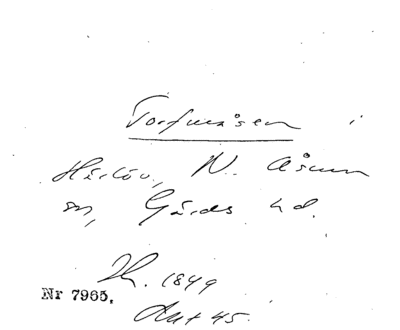 Torfmåsen i
Härlöv, N. Åsum
sn, Gärds hd.
Th. 1849
Nr 7965.
Ant 45.